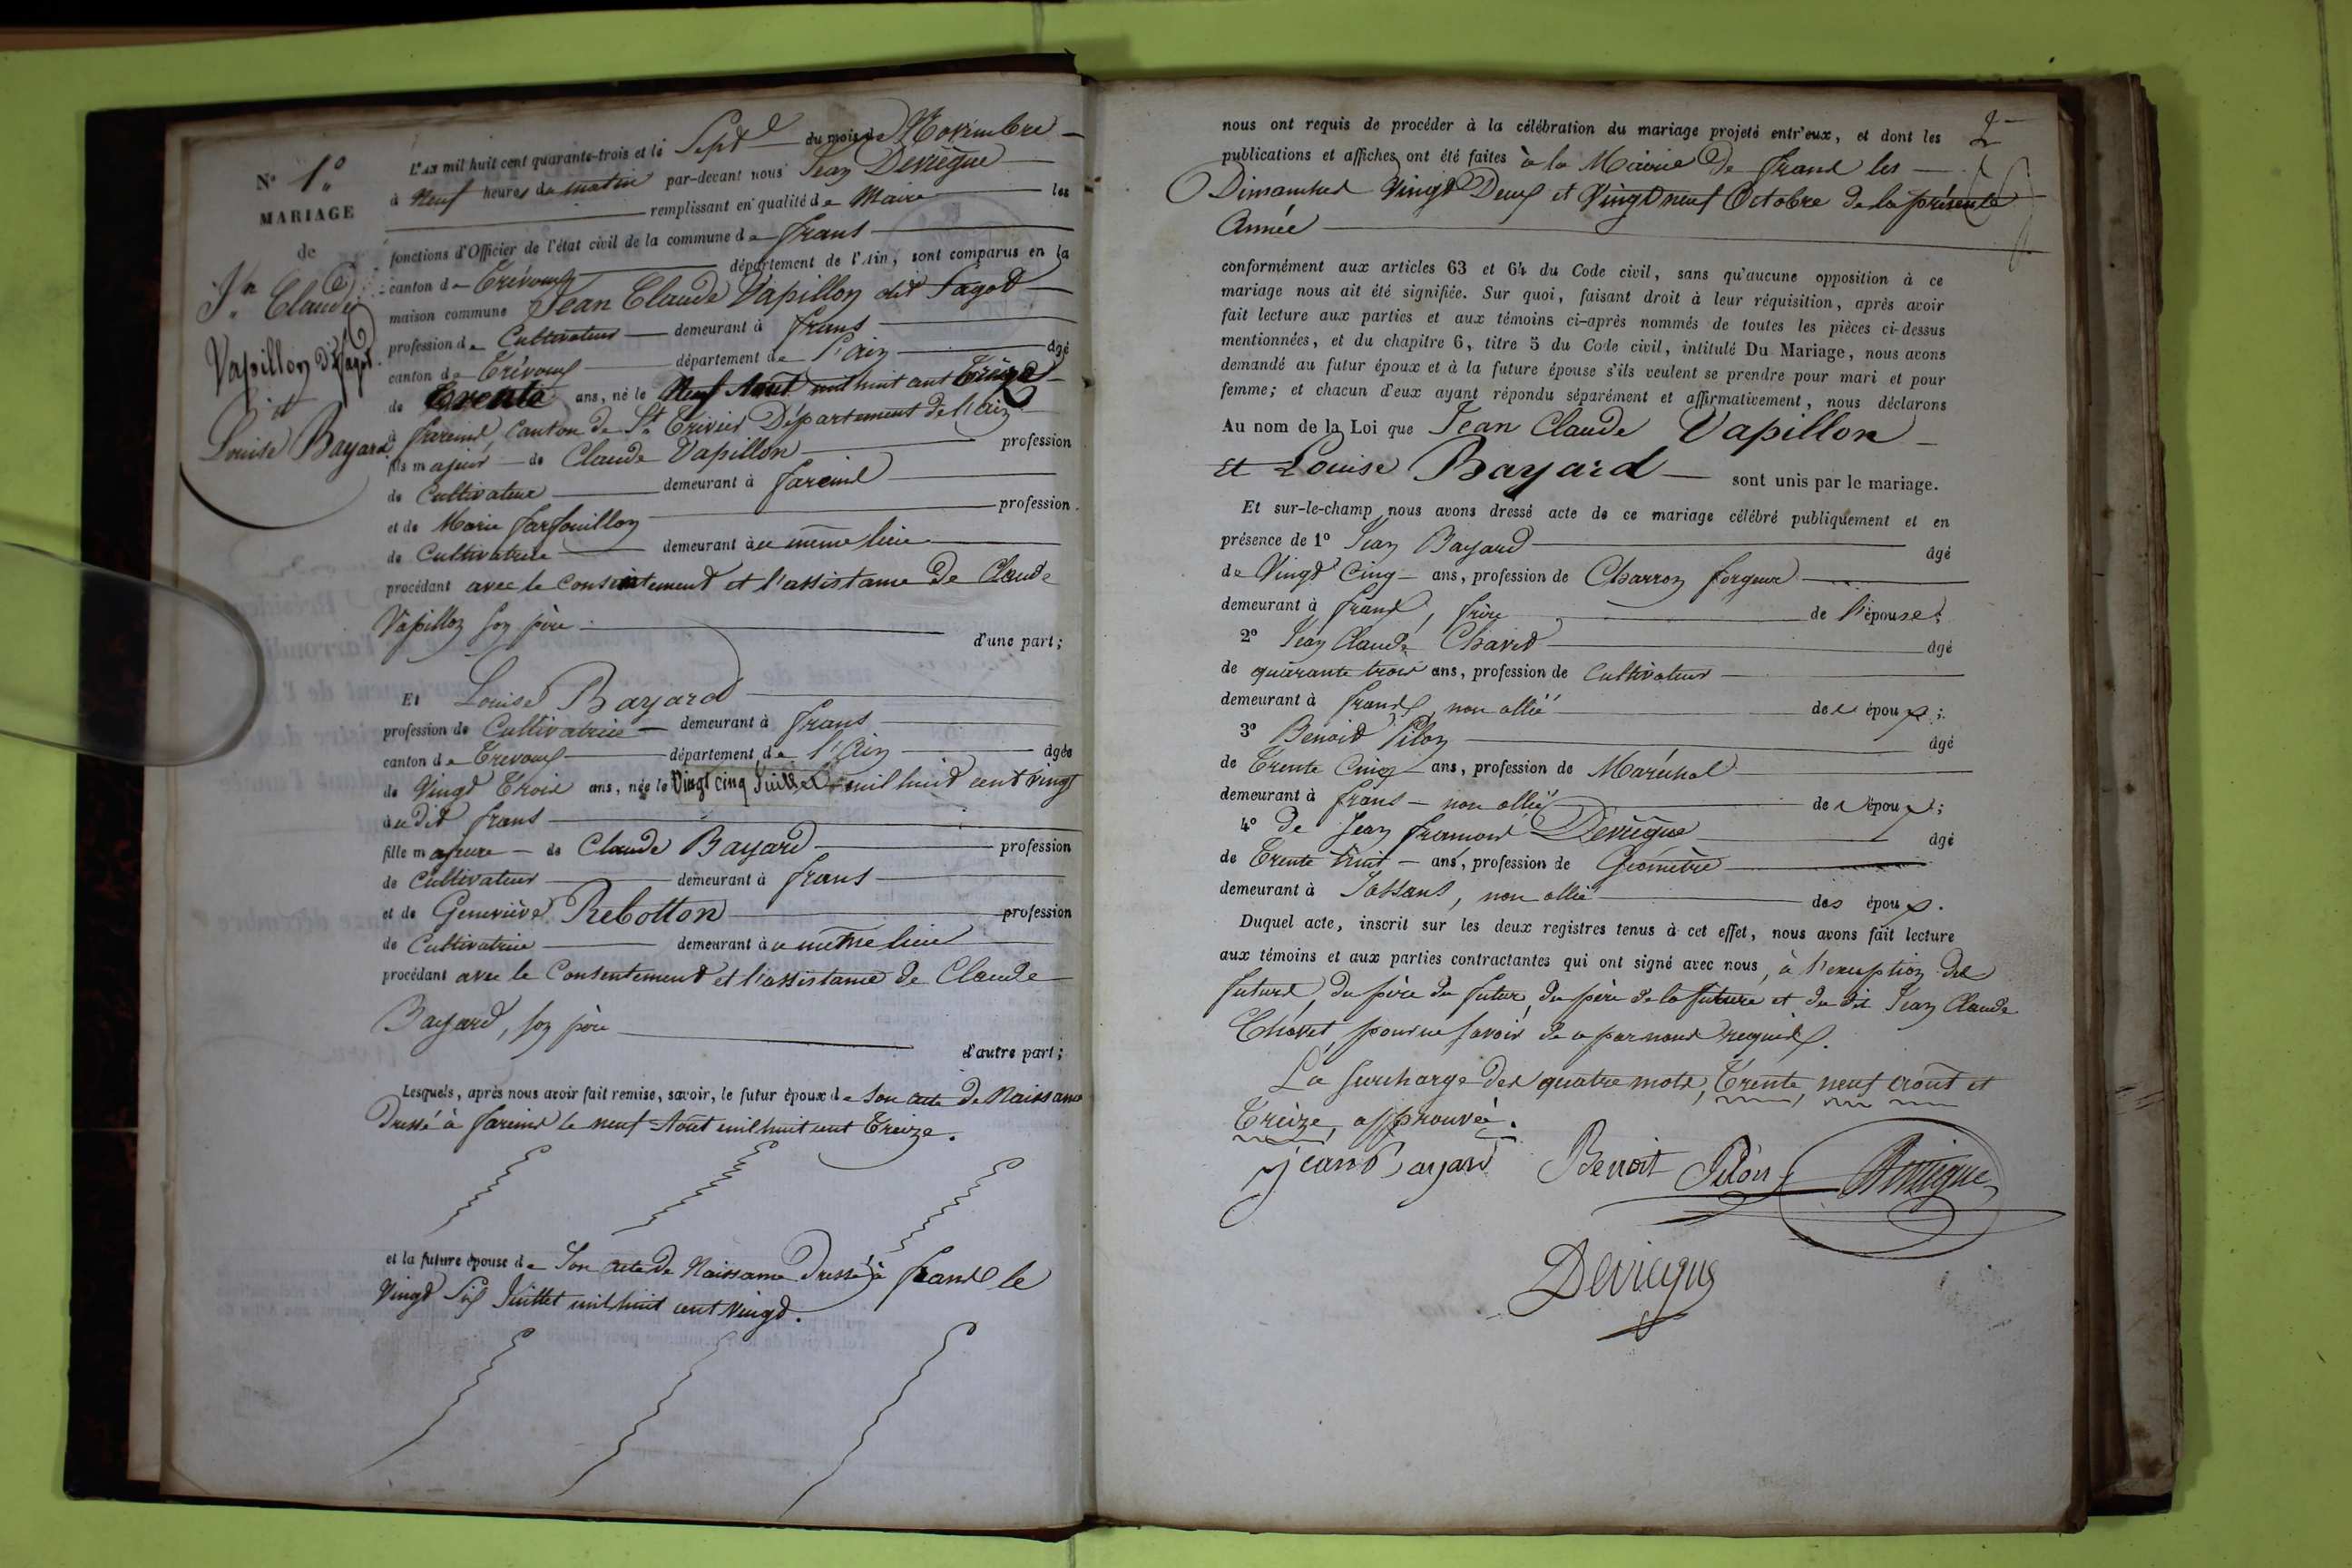 N° 1°
MARIAGE
de
Jn Claude
Vapillon dt Fagot
et
Louise Bayard
L'AN mil huit cent quarante-trois et le Sept du mois de Novembre
à neuf heures du matin par-devant nous Jean Devriègue
remplissant en qualité de Maire les
fonctions d'Officier de l'état civil de la commune de frans
canton de Trévoux département de l'Ain, sont comparus en la
maison commune Jean Claude Vapillon dit Fagot
profession de Cultivateur demeurant à frans
canton de Trévoux département de l'Ain âgé
de trente ans, né le neuf Aout mil huit cent treize
à fareins, canton de St Trivier Département de l'Ain
fils majeur de Claude Vapillon profession
de Cultivateur demeurant à fareins
et de Marie farfouillon profession
de Cultivatrice demeurant au même lieu
procédant avec le consentement et l'assistance de Claude
Vapillon son père
d'une part;
Et Louise Bayard
profession de Cultivatrice demeurant à frans
canton de Trevoux département de l'Ain âgée
de Vingt Trois ans, née le Vingt cinq Juillet mil huit cent vingt
audit frans
fille majeure de Claude Bayard profession
de Cultivateur demeurant à frans
et de Geneviève Rebotton profession
de Cultivatrice demeurant au même lieu
procédant avec le Consentement et l'assistance de Claude
Bayard, son père
d'autre part;
Lesquels, après nous avoir fait remise, savoir, le futur époux de son acte de Naissance
Dressé à fareins le neuf Aout mil huit cent Treize.
et la future épouse de Son acte de Naissance Dressé à frans le
Vingt Six Juillet mil huit cent vingt.
2
nous ont requis de procéder à la célébration du mariage projeté entr'eux, et dont les
publications et affiches ont été faites à la Mairie de frans les
Dimanches Vingt Deux et Vingt neuf Octobre de la présente
Année
conformément aux articles 63 et 64 du Code civil, sans qu'aucune opposition à ce
mariage nous ait été signifiée. Sur quoi, faisant droit à leur réquisition, après avoir
fait lecture aux parties et aux témoins ci-après nommés de toutes les pièces ci-dessus
mentionnées, et du chapitre 6, titre 5 du Code civil, intitulé Du Mariage, nous avons
demandé au futur époux et à la future épouse s'ils veulent se prendre pour mari et pour
femme; et chacun d'eux ayant répondu séparément et affirmativement, nous déclarons
Au nom de la Loi que Jean Claude Vapillon
et Louise Bayard sont unis par le mariage.
Et sur-le-champ nous avons dressé acte de ce mariage célébré publiquement et en
présence de 1° Jean Bayard âgé
de Vingt Cinq ans, profession de Charron forgeur
demeurant à frans, frère de l'épouse;
2° Jean Claude Chavet âgé
de quarante trois ans, profession de Cultivateur
demeurant à frans, non allié des époux;
3° Benoit Pilon âgé
de Trente Cinq ans, profession de Maréchal
demeurant à frans non allié des époux;
4° de Jean Devriègue âgé
de Trente huit ans, profession de Géomètre
demeurant à Jassans, non allié des époux.
Duquel acte, inscrit sur les deux registres tenus à cet effet, nous avons fait lecture
aux témoins et aux parties contractantes qui ont signé avec nous, à l'exception des
futurs, du père du futur, du père de la future et du dit Jean Claude
Chavet pour ne savoir de ce par nous requis.
La surcharge des quatre mots, Trente, neuf aout et
Treize, approuvée.
jean Bayard Benoit Pilon Devriegue
Devriegue